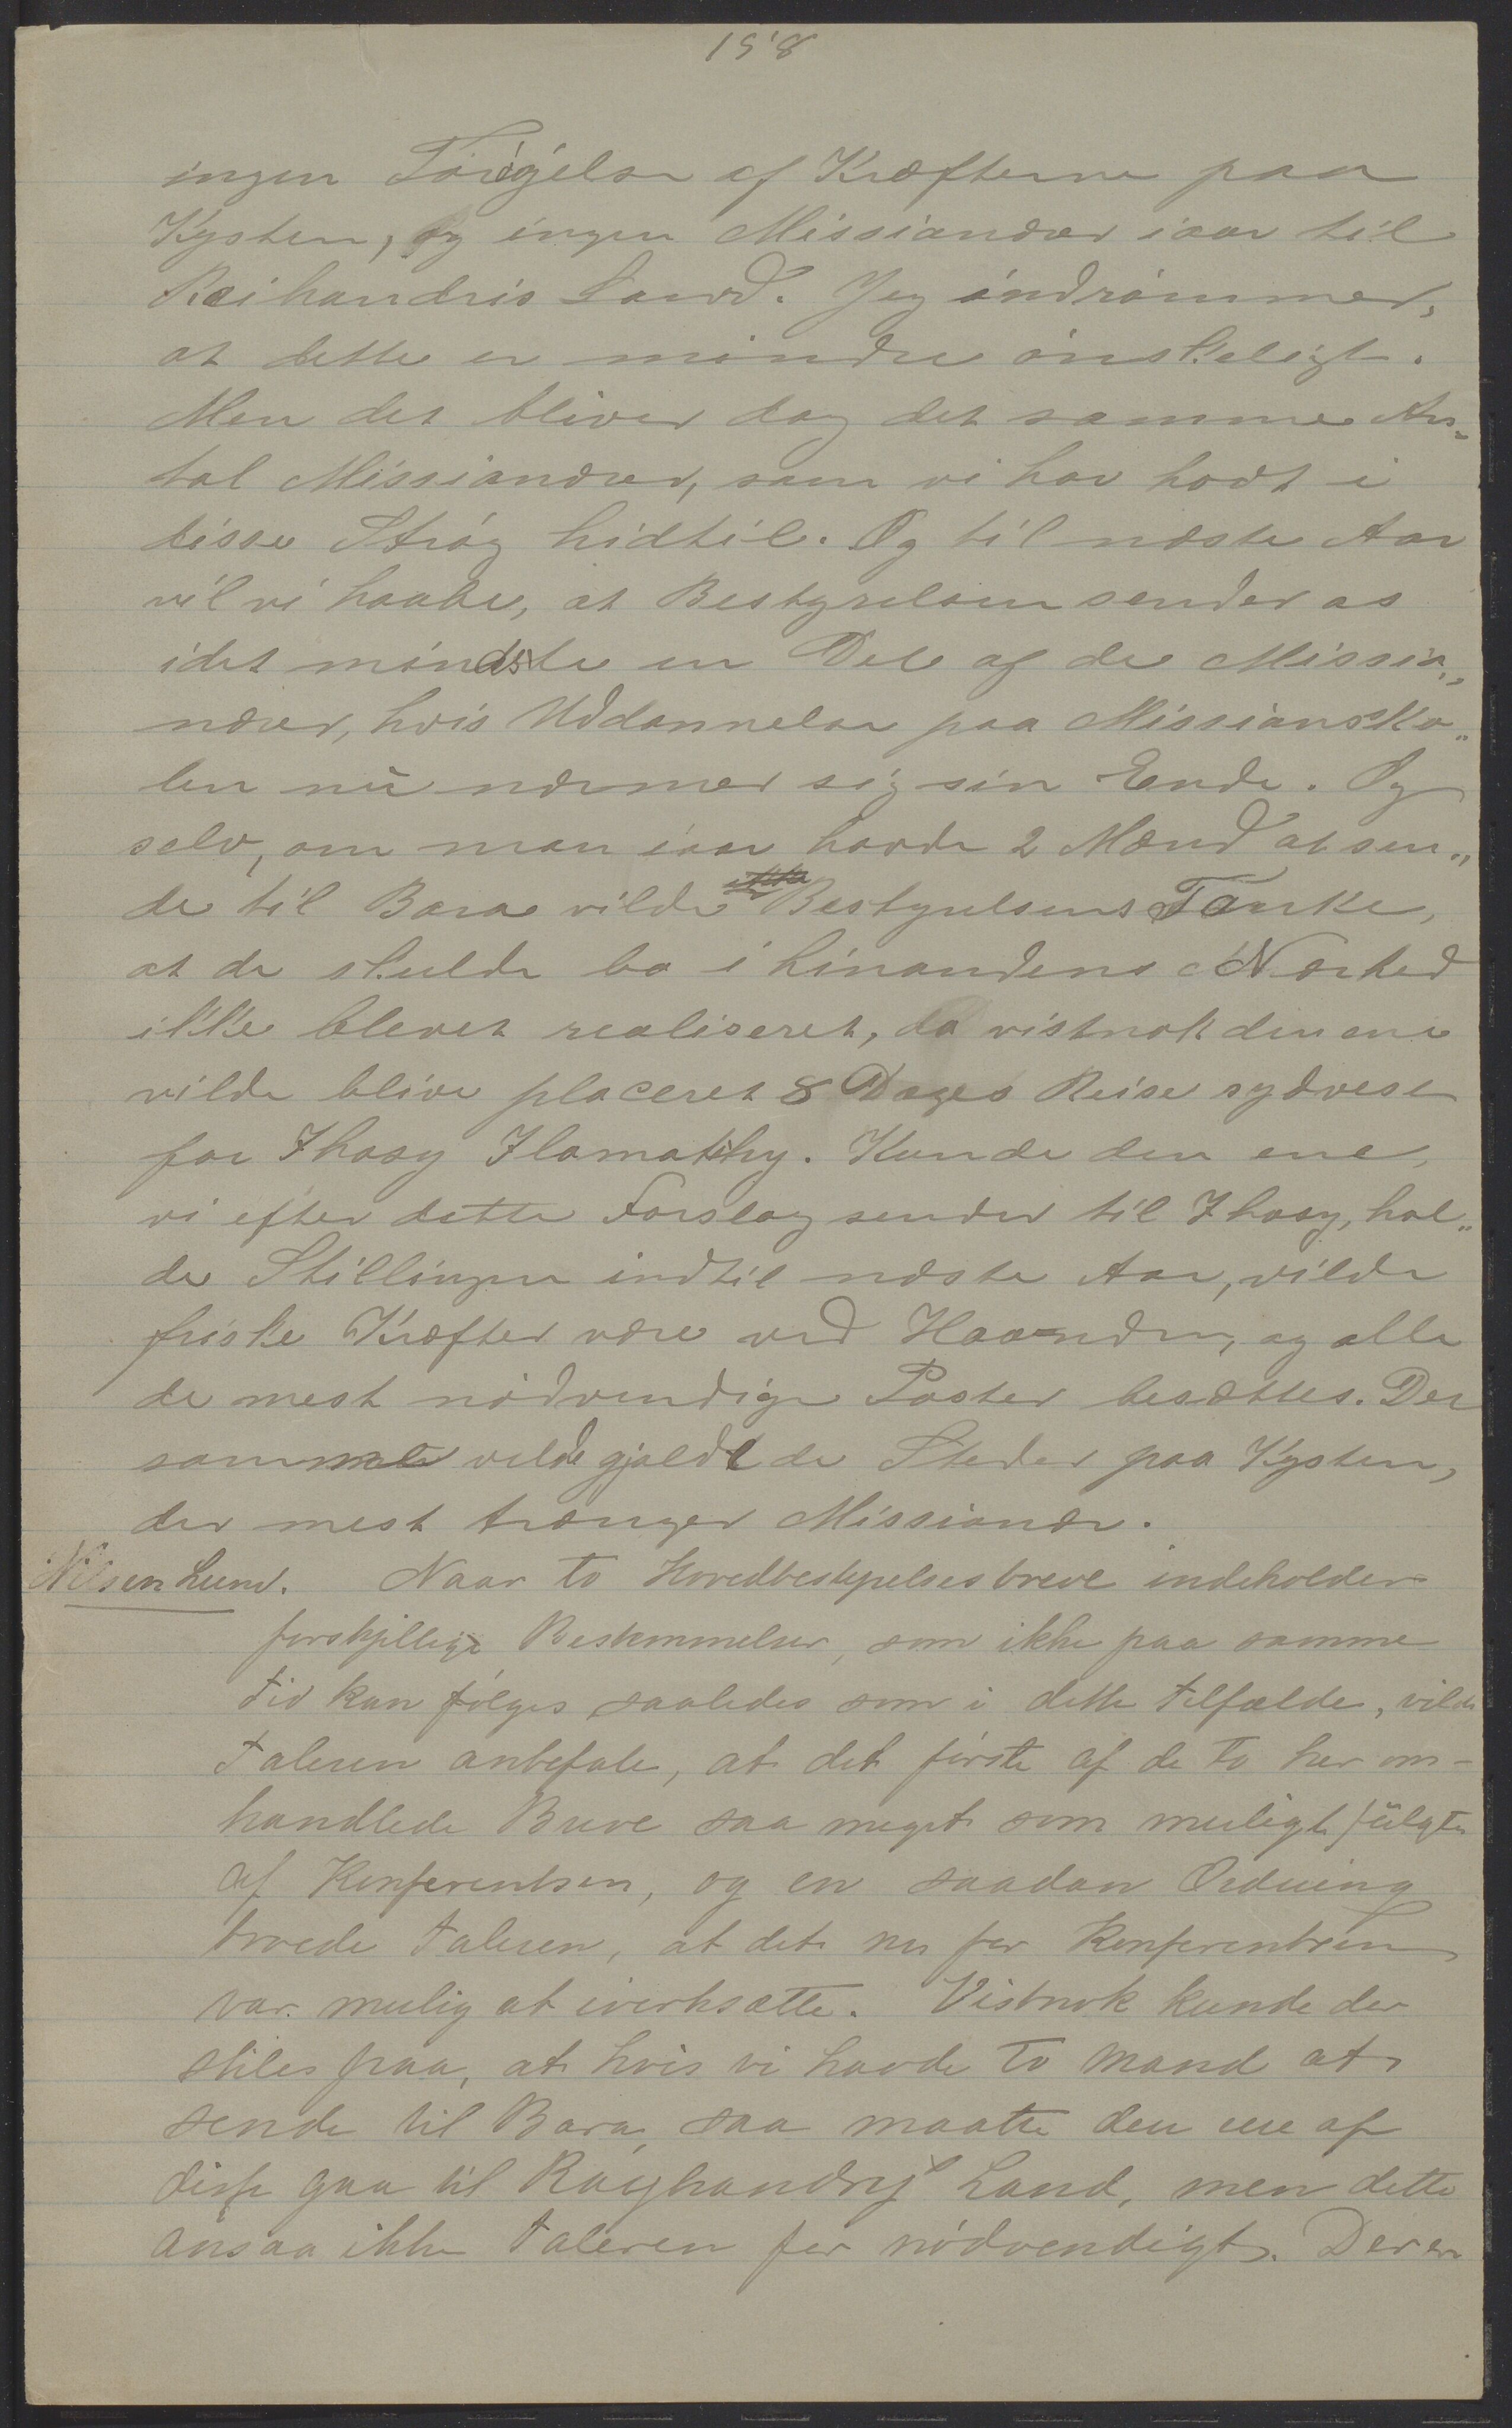 158
ingen Forøgelse af Kræfterne paa
Kysten, og ingen Missionærer iaar til
Raihandris Land. Jeg indrømmer,
at dette er mindre ønskeligt.
Men det bliver dog det samme An-
tal Missionærer, som vi har havt i
disse Strøg hidtil. Og til næste Aar
vil vi haabe, at Bestyrelsen sender os
idet mindste en Del af de Missio„
nærer, hvis Uddannelse paa Missionssko„
len nu nærmer sig sin Ende. Og
selv, om man iaar havde 2 Mænd at sen„
de til Bara vilde Bestyrelsens Tanke,
at de skulde bo i hinandens Nærhed
ikke blevet realiseret, da vistnok den ene
vilde blive placeret 8 Dages Reise sydvest
for Ihosy Ilamatihy. Kunde den ene,
vi efter dette Forslag sender til Ihosy, hol„
de Stillingen indtil næste Aar, vilde
friske Kræfter være ved Haanden, og alle
de mest nødvendige Poster besættes. Det
samme vilde gjælde de Steder paa Kysten,
der mest trænger Missionær.
Nilsen Lund. Naar to Hovedbestyrelsesbreve indeholder
forskjellige Bestemmelser, som ikke paa samme
tid kan følges saaledes som i dette tilfælde, vilde
taleren anbefale, at det første af de to her om-
handlede Breve saa meget som muligt fülgtes
af Konferentsen, og en saadan Ordning
troede taleren, at det nu for Konferentsen
var mulig at iverksætte. Vistnok kunde der
stiles paa, at hvis vi havde to mænd at
sende til Bara, saa maatte den ene af
disse gaa til Rayhandrys Land, men dette
ansaa ikke taleren for nødvendigt. Der er